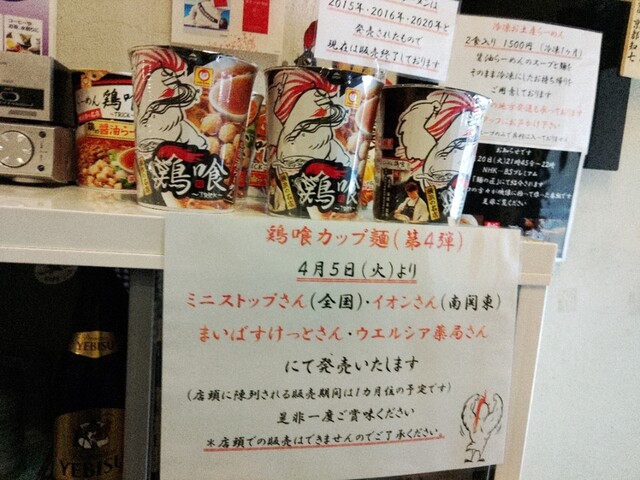 2015年・2016年・2020年と
発売されたもので
現在は販売終了しております
冷凍お土産らーめん
2食入り 1500円 (冷凍1ヶ月)
醤油らーめんのスープと麺を
そのまま冷凍したお持ち帰りを
ご用意しております
おしらせです
NHK-BSプレミアム
是非ご覧ください
鶏喰
鶏喰
鶏喰
醤油らーめん
鶏喰カップ麺(第4弾)
4月5日(火)より
ミニストップさん(全国)・イオンさん(南関東)
まいばすけっとさん・ウエルシア薬局さん
にて発売いたします
(店頭に陳列される販売期間は1カ月位の予定です)
是非一度ご賞味ください
*店頭での販売はできませんのでご了承ください。
YEBISU
YEBISU